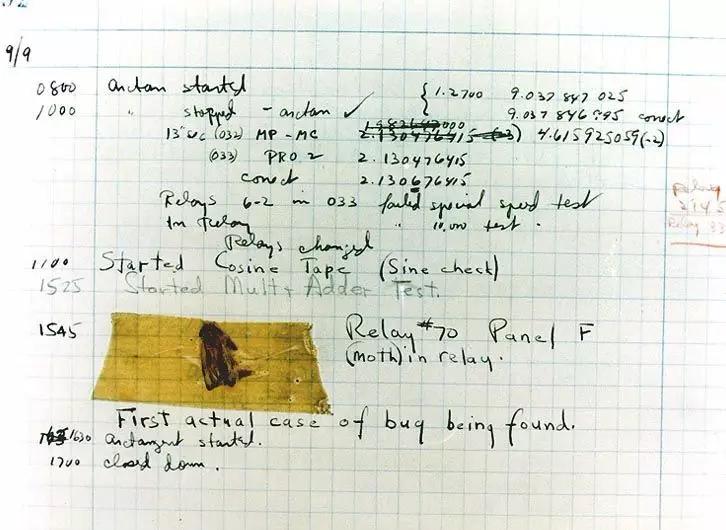 9/9
0800 arctan started { 1.2700 9.037 847 025
1000 " stopped - arctan ✓ 9.037 846 995 correct
13 (032) MP - MC 2.130476415 (-3) 4.615925059(-2)
(033) PRO 2 2.130476415
correct 2.130676415
Relays 6-2 in 033 failed special speed test
In Relay " 10,000 test.
Relay
2145
Relay 33
Relays changed
1100 Started Cosine Tape (Sine check)
1525 Started Mult + Adder Test.
1545 Relay #70 Panel F
(moth) in relay.
First actual case of bug being found.
1630 arctangent started.
1700 closed down.